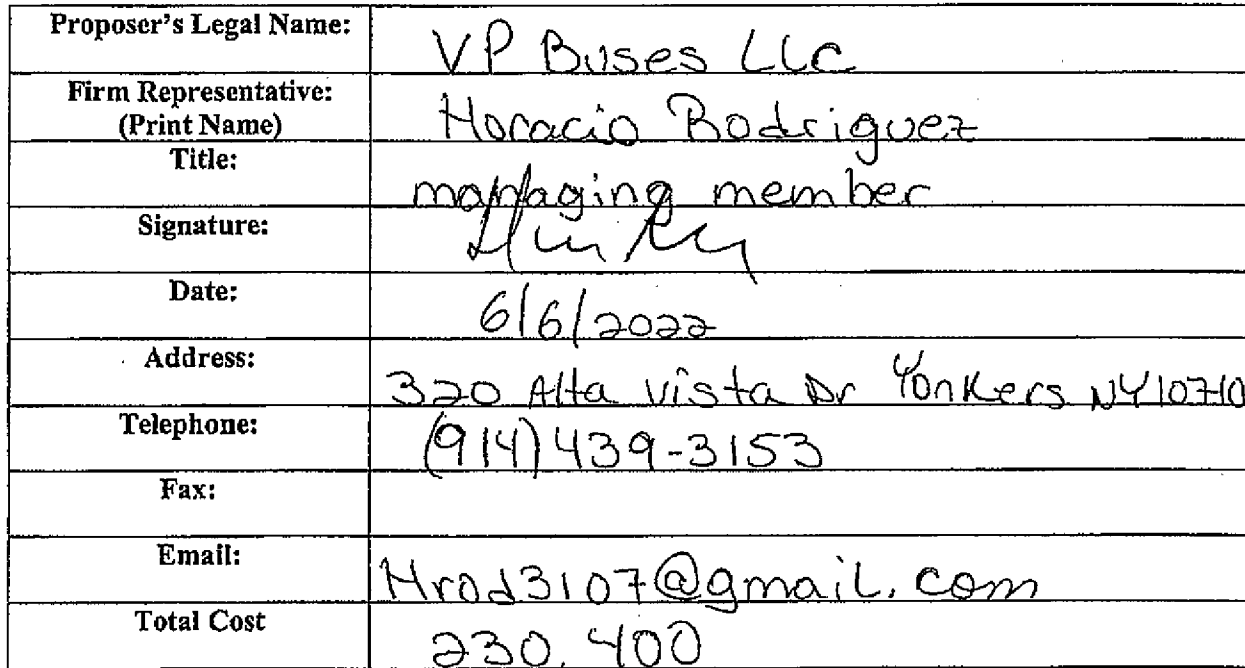 Proposer's Legal Name: VP Buses LLC
Firm Representative: Horacio Rodriguez
(Print Name)
Title: managing member
Signature:
Date: 6/6/2022
Address: 320 Alta Vista Dr Yonkers NY 10710
Telephone: (914) 439-3153
Fax:
Email: Hrod3107@gmail.com
Total Cost 230,400